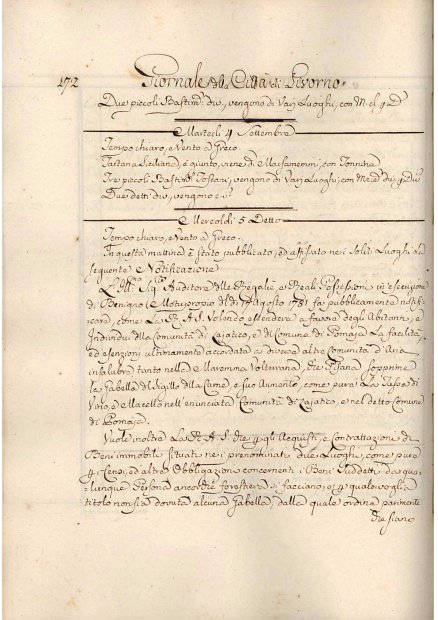 172 Giornale della Città di Livorno
Due piccoli Bastim.ti div., vengono di Varj Luoghi, con
Martedì 4 Settembre
Tempo chiaro, e Vento a Greco.
Tartana Siciliana, è giunto, viene di Marsamemi, con Tonnine
Tre piccoli Bastim.ti Toscani, vengono di Varj Luoghi, con
Due detti div., vengono c. s.
Mercoldì 5 Detto
Tempo chiaro, e Vento a Greco.
In questa mattina è stato pubblicato, ed affissato nei Soliti Luoghi La
Seguente Notificazione
L'Ill.mo Sig.re Auditore delle Regalie, e Reali Possessioni in esecuzione
di Benigno Motuproprio del dì Agosto 1781 fa pubblicamente notifi=
care, come La R. A. S. Volendo estendere a favore degli Abitanti, e
Individui della Comunità di Lajatico, e del Comune di Pomaja La facilità,
ed esenzioni ultimamente accordate a diverse altre Comunità d'Aria
insalubre tanto nella Maremma Volterrana, che Pisana Sopprime
la Gabella del Sigillo della Carne, e suo Aumento, come pure La Tassa di
Vino, e Macello nell'enunciata Comunità di Lajatico, e nel detto Comune
di Pomaja.
Vuole inoltre La R. A. S. che per gli Acquisti, e Contrattazioni di
Beni immobili Situati nei prenominati due Luoghi, come pure
per i Censi, ed altre Obbligazioni concernenti i Beni Suddetti da qua=
lunque Persona ancorchè forestiera si facciano, e per qualsivoglia
titolo non sia dovuta alcuna Gabella, dalla quale ordina parimente
che siano